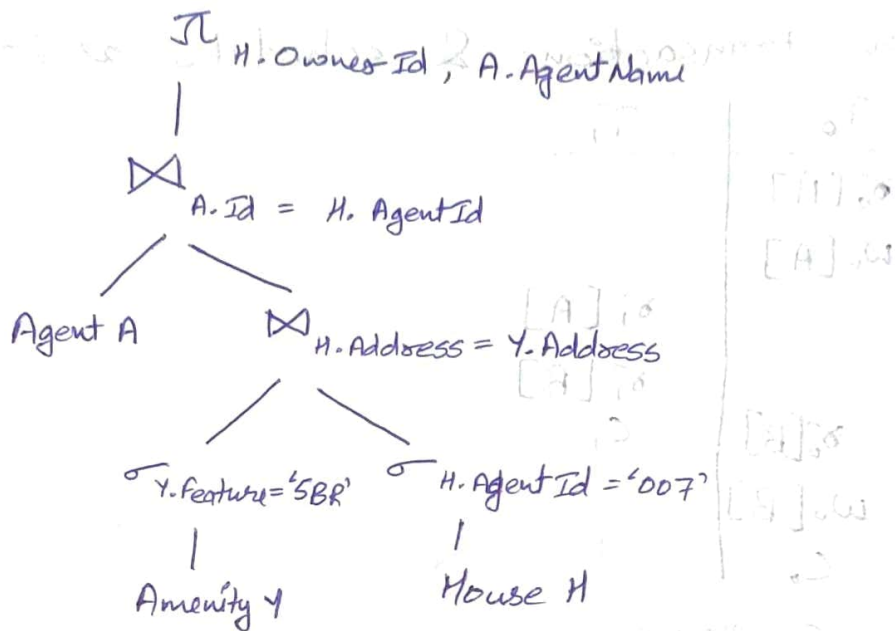 π
H. Owner Id, A. Agent Name
⋈
A. Id = H. Agent Id
Agent A
⋈ H. Address = Y. Address
σ Y. Feature = '5BR' σ H. Agent Id = '007'
Amenity Y House H